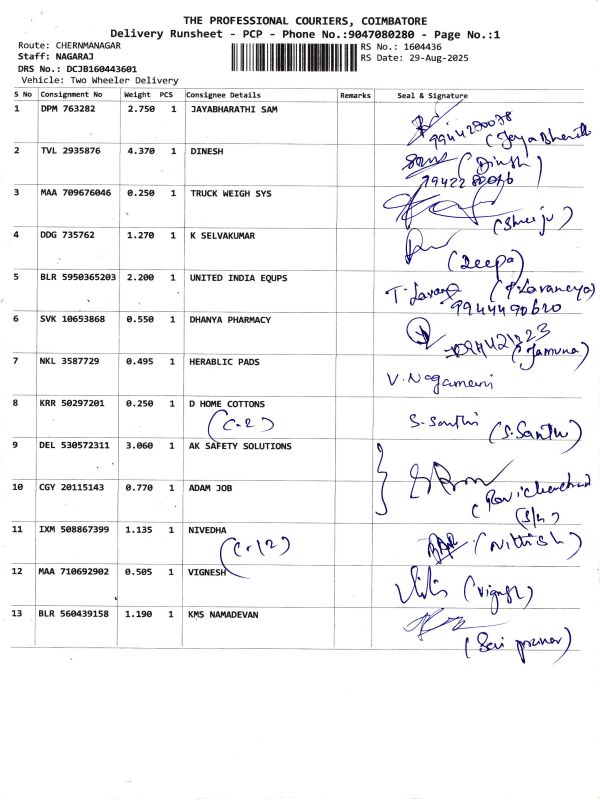 THE PROFESSIONAL COURIERS, COIMBATORE
Delivery Runsheet - PCP - Phone No.:9047080280 - Page No.:1
Route: CHERNMANAGAR RS No.: 1604436
Staff: NAGARAJ RS Date: 29-Aug-2025
DRS No.: DCJB160443601
Vehicle: Two Wheeler Delivery
S No Consignment No Weight PCS Consignee Details Remarks Seal & Signature
1 DPM 763282 2.750 1 JAYABHARATHI SAM
9944270078
2 TVL 2935876 4.370 1 DINESH
(Dinsh)
3 MAA 709676046 0.250 1 TRUCK WEIGH SYS
(Shreeju)
4 DDG 735762 1.270 1 K SELVAKUMAR
(Deepa)
5 BLR 5950365203 2.200 1 UNITED INDIA EQUPS
T. Lavanya (T.Lavaneya)
9944490620
6 SVK 10653868 0.550 1 DHANYA PHARMACY
(Jamuna)
7 NKL 3587729 0.495 1 HERABLIC PADS
V. Nagamani
8 KRR 50297201 0.250 1 D HOME COTTONS
(C-2) S. Santhi (S.Santhi)
9 DEL 530572311 3.060 1 AK SAFETY SOLUTIONS
10 CGY 20115143 0.770 1 ADAM JOB
11 IXM 508867399 1.135 1 NIVEDHA
(C-12) (Nithish)
12 MAA 710692902 0.505 1 VIGNESH
(Vignesh)
13 BLR 560439158 1.190 1 KMS NAMADEVAN
(Sai pranav)